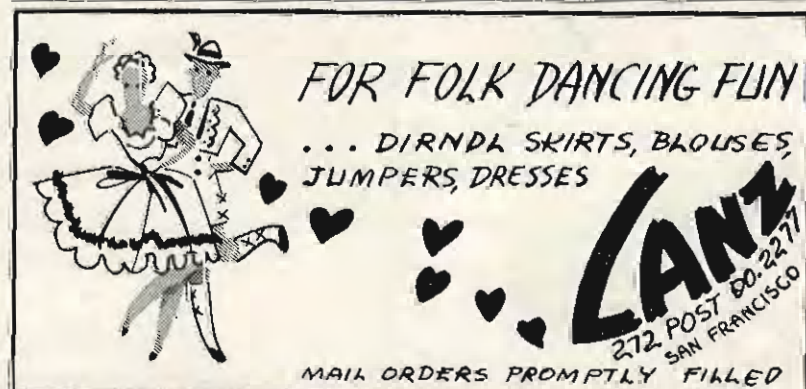 FOR FOLK DANCING FUN
... DIRNDL SKIRTS, BLOUSES,
JUMPERS, DRESSES
LANZ
272 POST DO. 2277
SAN FRANCISCO
MAIL ORDERS PROMPTLY FILLED